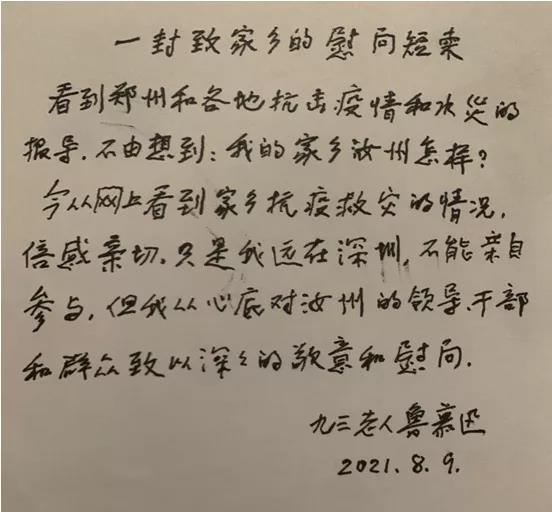 一封致家乡的慰问短柬
看到郑州和各地抗击疫情和水災的
报导.不由想到:我的家乡汝州怎样?
今从网上看到家乡抗疫救灾的情况,
倍感亲切.只是我远在深圳,不能亲自
参与,但我从心底对汝州的领导、干部
和群众致以深深的敬意和慰问.
九三老人鲁慕迅
2021.8.9.